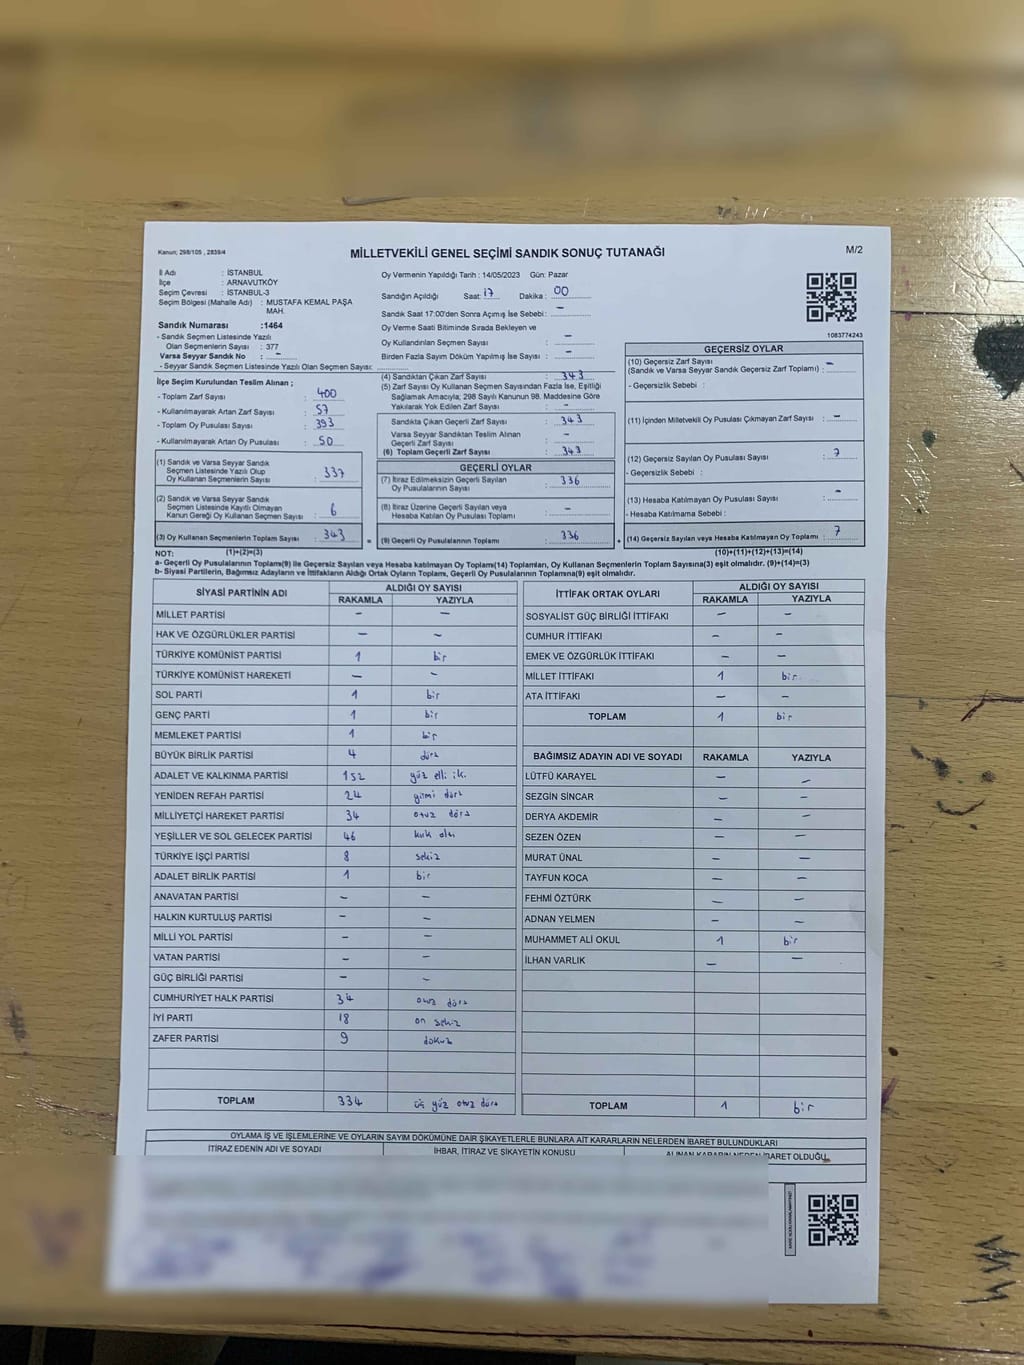 Kanun: 298/105 , 2839/4
MİLLETVEKİLİ GENEL SEÇİMİ SANDIK SONUÇ TUTANAĞI
M/2
İl Adı : İSTANBUL
İlçe : ARNAVUTKÖY
Seçim Çevresi : İSTANBUL-3
Seçim Bölgesi (Mahalle Adı) : MUSTAFA KEMAL PAŞA
MAH.
Sandık Numarası :1464
- Sandık Seçmen Listesinde Yazılı
Olan Seçmenlerin Sayısı : 377
Varsa Seyyar Sandık No : -
- Seyyar Sandık Seçmen Listesinde Yazılı Olan Seçmen Sayısı:
Oy Vermenin Yapıldığı Tarih : 14/05/2023 Gün: Pazar
Sandığın Açıldığı Saat: 17 Dakika : 00
Sandık Saat 17:00'den Sonra Açımış İse Sebebi: -
Oy Verme Saati Bitiminde Sırada Bekleyen ve
Oy Kullandırılan Seçmen Sayısı : -
Birden Fazla Sayım Döküm Yapılmış İse Sayısı : -
1083774243
İlçe Seçim Kurulundan Teslim Alınan ;
- Toplam Zarf Sayısı : 400
- Kullanılmayarak Artan Zarf Sayısı : 57
- Toplam Oy Pusulası Sayısı : 393
- Kullanılmayarak Artan Oy Pusulası : 50
(1) Sandık ve Varsa Seyyar Sandık
Seçmen Listesinde Yazılı Olup
Oy Kullanan Seçmenlerin Sayısı : 337
(2) Sandık ve Varsa Seyyar Sandık
Seçmen Listesinde Kayıtlı Olmayan
Kanun Gereği Oy Kullanan Seçmen Sayısı : 6
(3) Oy Kullanan Seçmenlerin Toplam Sayısı : 343 =
(4) Sandıktan Çıkan Zarf Sayısı : 343
(5) Zarf Sayısı Oy Kullanan Seçmen Sayısından Fazla İse, Eşitliği
Sağlamak Amacıyla; 298 Sayılı Kanunun 98. Maddesine Göre
Yakılarak Yok Edilen Zarf Sayısı : -
Sandıkta Çıkan Geçerli Zarf Sayısı : 343
Varsa Seyyar Sandıktan Teslim Alınan
Geçerli Zarf Sayısı : -
(6) Toplam Geçerli Zarf Sayısı : 343
GEÇERLİ OYLAR
(7) İtiraz Edilmeksizin Geçerli Sayılan
Oy Pusulalarının Sayısı : 336
(8) İtiraz Üzerine Geçerli Sayılan veya
Hesaba Katılan Oy Pusulası Toplamı : -
(9) Geçerli Oy Pusulalarının Toplamı : 336 +
GEÇERSİZ OYLAR
(10) Geçersiz Zarf Sayısı
(Sandık ve Varsa Seyyar Sandık Geçersiz Zarf Toplamı) : -
- Geçersizlik Sebebi :
(11) İçinden Milletvekili Oy Pusulası Çıkmayan Zarf Sayısı : -
(12) Geçersiz Sayılan Oy Pusulası Sayısı : 7
- Geçersizlik Sebebi :
(13) Hesaba Katılmayan Oy Pusulası Sayısı : -
- Hesaba Katılmama Sebebi :
(14) Geçersiz Sayılan veya Hesaba Katılmayan Oy Toplamı : 7
NOT: (1)+(2)=(3) (10)+(11)+(12)+(13)=(14)
a- Geçerli Oy Pusulalarının Toplamı(9) ile Geçersiz Sayılan veya Hesaba katılmayan Oy Toplamı(14) Toplamları, Oy Kullanan Seçmenlerin Toplam Sayısına(3) eşit olmalıdır. (9)+(14)=(3)
b- Siyasi Partilerin, Bağımsız Adayların ve İttifakların Aldığı Ortak Oyların Toplamı, Geçerli Oy Pusulalarının Toplamına(9) eşit olmalıdır.
SİYASİ PARTİNİN ADI ALDIĞI OY SAYISI
RAKAMLA YAZIYLA
MİLLET PARTİSİ - -
HAK VE ÖZGÜRLÜKLER PARTİSİ - -
TÜRKİYE KOMÜNİST PARTİSİ 1 bir
TÜRKİYE KOMÜNİST HAREKETİ - -
SOL PARTİ 1 bir
GENÇ PARTİ 1 bir
MEMLEKET PARTİSİ 1 bir
BÜYÜK BİRLİK PARTİSİ 4 dört
ADALET VE KALKINMA PARTİSİ 152 yüz elli iki
YENİDEN REFAH PARTİSİ 24 yirmi dört
MİLLİYETÇİ HAREKET PARTİSİ 34 otuz dört
YEŞİLLER VE SOL GELECEK PARTİSİ 46 kırk altı
TÜRKİYE İŞÇİ PARTİSİ 8 sekiz
ADALET BİRLİK PARTİSİ 1 bir
ANAVATAN PARTİSİ - -
HALKIN KURTULUŞ PARTİSİ - -
MİLLİ YOL PARTİSİ - -
VATAN PARTİSİ - -
GÜÇ BİRLİĞİ PARTİSİ - -
CUMHURİYET HALK PARTİSİ 34 otuz dört
İYİ PARTİ 18 on sekiz
ZAFER PARTİSİ 9 dokuz
TOPLAM 334 üç yüz otuz dört
İTTİFAK ORTAK OYLARI ALDIĞI OY SAYISI
RAKAMLA YAZIYLA
SOSYALİST GÜÇ BİRLİĞİ İTTİFAKI - -
CUMHUR İTTİFAKI - -
EMEK VE ÖZGÜRLÜK İTTİFAKI - -
MİLLET İTTİFAKI 1 bir
ATA İTTİFAKI - -
TOPLAM 1 bir
BAĞIMSIZ ADAYIN ADI VE SOYADI RAKAMLA YAZIYLA
LÜTFÜ KARAYEL - -
SEZGİN SİNCAR - -
DERYA AKDEMİR - -
SEZEN ÖZEN - -
MURAT ÜNAL - -
TAYFUN KOCA - -
FEHMİ ÖZTÜRK - -
ADNAN YELMEN - -
MUHAMMET ALİ OKUL 1 bir
İLHAN VARLIK - -
TOPLAM 1 bir
OYLAMA İŞ VE İŞLEMLERİNE VE OYLARIN SAYIM DÖKÜMÜNE DAİR ŞİKAYETLERLE BUNLARA AİT KARARLARIN NELERDEN İBARET BULUNDUKLARI
İTİRAZ EDENİN ADI VE SOYADI
İHBAR, İTİRAZ VE ŞİKAYETİN KONUSU
ALINAN KARARIN NEDEN İBARET OLDUĞU